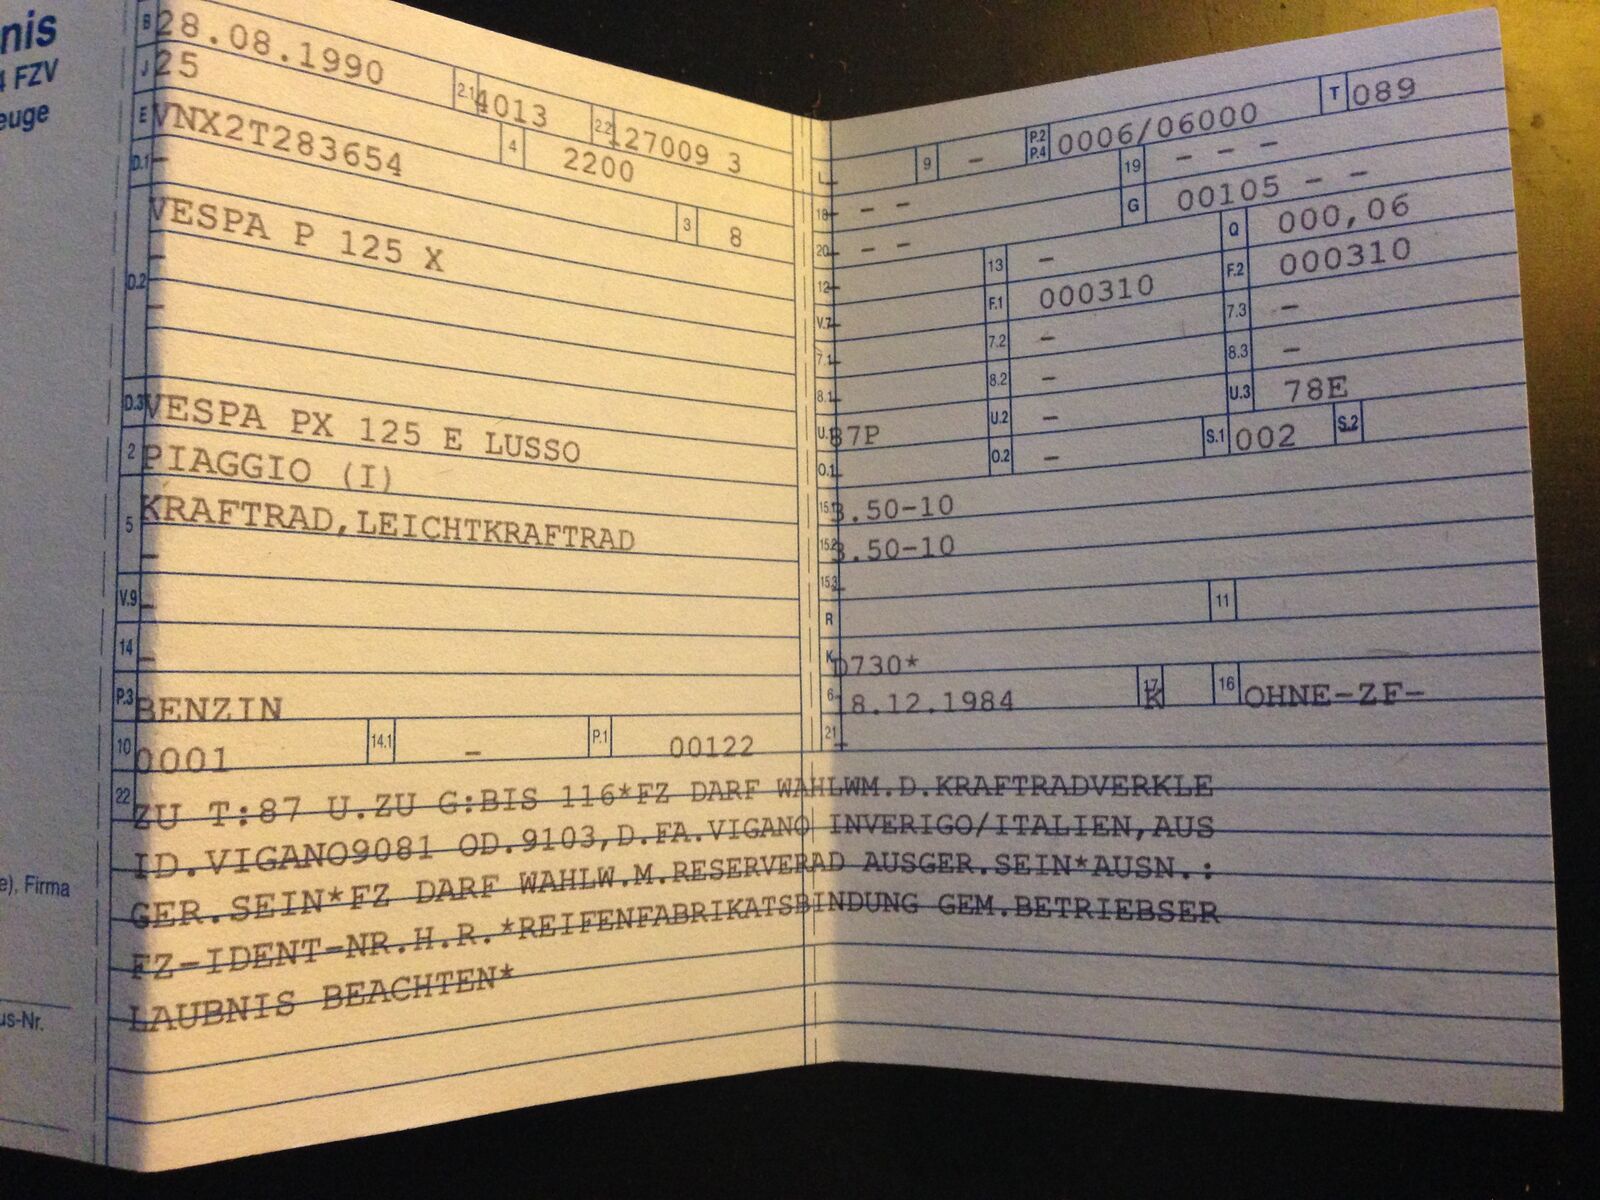 nis
4 FZV
euge
e), Firma
us-Nr.
B 28.08.1990 2.1 4013 2.2 127009 3
J 25
E VNX2T283654 4 2200
D.1 - 3 8
VESPA P 125 X
D.2 -
D.3 VESPA PX 125 E LUSSO
2 PIAGGIO (I)
5 KRAFTRAD,LEICHTKRAFTRAD
-
V.9 -
14 -
P.3 BENZIN
10 0001 14.1 - P.1 00122
L - 9 - P.2 P.4 0006/06000 T 089
18 - - 19 - - -
20 - - G 00105 - -
12 - 13 - Q 000,06
V.7 - F.1 000310 F.2 000310
7.1 - 7.2 - 7.3 -
8.1 - 8.2 - 8.3 -
U.1 87P U.2 - U.3 78E
O.1 - O.2 - S.1 002 S.2
15.1 3.50-10
15.2 3.50-10
15.3 -
R 11
K D730*
6 18.12.1984 17 K 16 OHNE-ZF-
21 -
22 ZU T:87 U.ZU G:BIS 116*FZ DARF WAHLWM.D.KRAFTRADVERKLE
ID.VIGANO9081 OD.9103,D.FA.VIGANO INVERIGO/ITALIEN,AUS
GER.SEIN*FZ DARF WAHLW.M.RESERVERAD AUSGER.SEIN*AUSN.:
FZ-IDENT-NR.H.R.*REIFENFABRIKATSBINDUNG GEM.BETRIEBSER
LAUBNIS BEACHTEN*